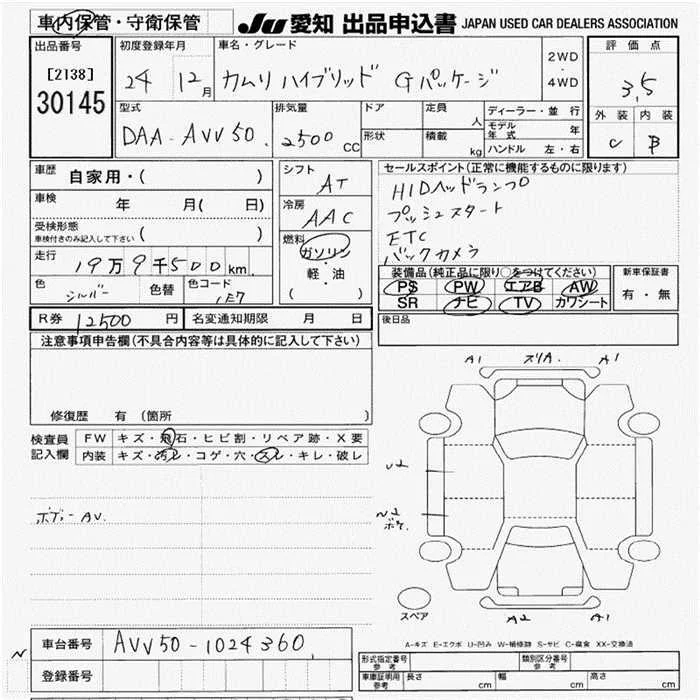 車内保管・守衛保管
JU 愛知 出品申込書 JAPAN USED CAR DEALERS ASSOCIATION
出品番号
[2138]
30145
初度登録年月
24 12月
車名・グレード
カムリ ハイブリッド Gパッケージ
2WD
・
4WD
評価点
3.5
外装 内装
C B
型式
DAA-AVV50
排気量
2500 CC
ドア
形状
定員 人
積載 kg
ディーラー・並行
モデル年式 年
ハンドル 左・右
車歴 自家用・( )
車検 年 月( 日)
受検形態
車検付きのみ記入して下さい ( )
走行 19万9千500km
色 シルバー 色替
色コード 1F7
シフト
AT
冷房
AAC
燃料
ガソリン
・
軽・油
( )
セールスポイント(正常に機能するものに限ります)
HIDヘッドランプ
プッシュスタート
ETC
バックカメラ
装備品(純正品に限り○をつけてください)
PS PW エアB AW
SR ナビ TV カワシート
新車保証書
有・無
R券 12500 円 名変通知期限 月 日
後日品
注意事項申告欄(不具合内容等は具体的に記入して下さい)
修復歴 有 (箇所 )
検査員記入欄
FW キズ・飛石・ヒビ割・リペア跡・X要
内装 キズ・汚レ・コゲ・穴・スレ・キレ・破レ
ボデーAV.
A1 スリA. A1
U2
スペア
A2 A1
A-キズ E-エクボ U-凹み W-補修跡 S-サビ C-腐食 XX-交換済
車台番号 AVV50-1024360
登録番号
形式指定番号 参考
類別区分番号 参考
車庫証明用 参考 長さ cm 幅 cm 高さ cm